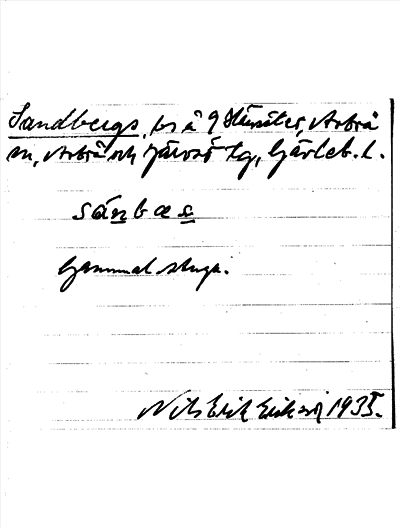 Sandbergs, bs å 9 Hänsäter, Arbrå
sn, Arbrå och Järvsö tg, Gävleb. l.
sánbæs
Gammal stuga.
Nils Erik Eriksson 1935.